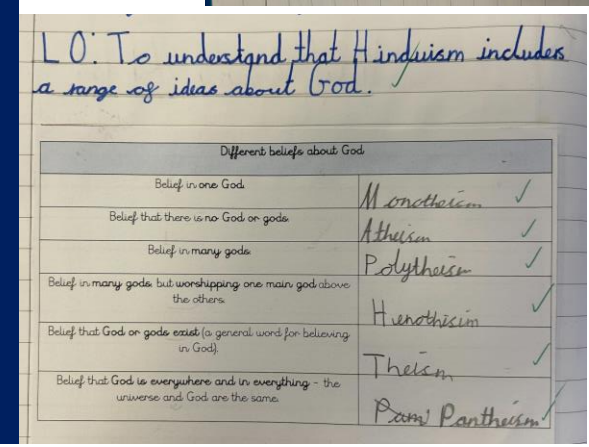 LO: To understand that Hinduism includes
a range of ideas about God.
Different beliefs about God
Belief in one God
Monotheism
Belief that there is no God or gods
Atheism
Belief in many gods
Polytheism
Belief in many gods but worshipping one main god above
the others
Hienothisim
Belief that God or gods exist (a general word for believing
in God).
Theism
Belief that God is everywhere and in everything - the
universe and God are the same.
Pam Pantheism